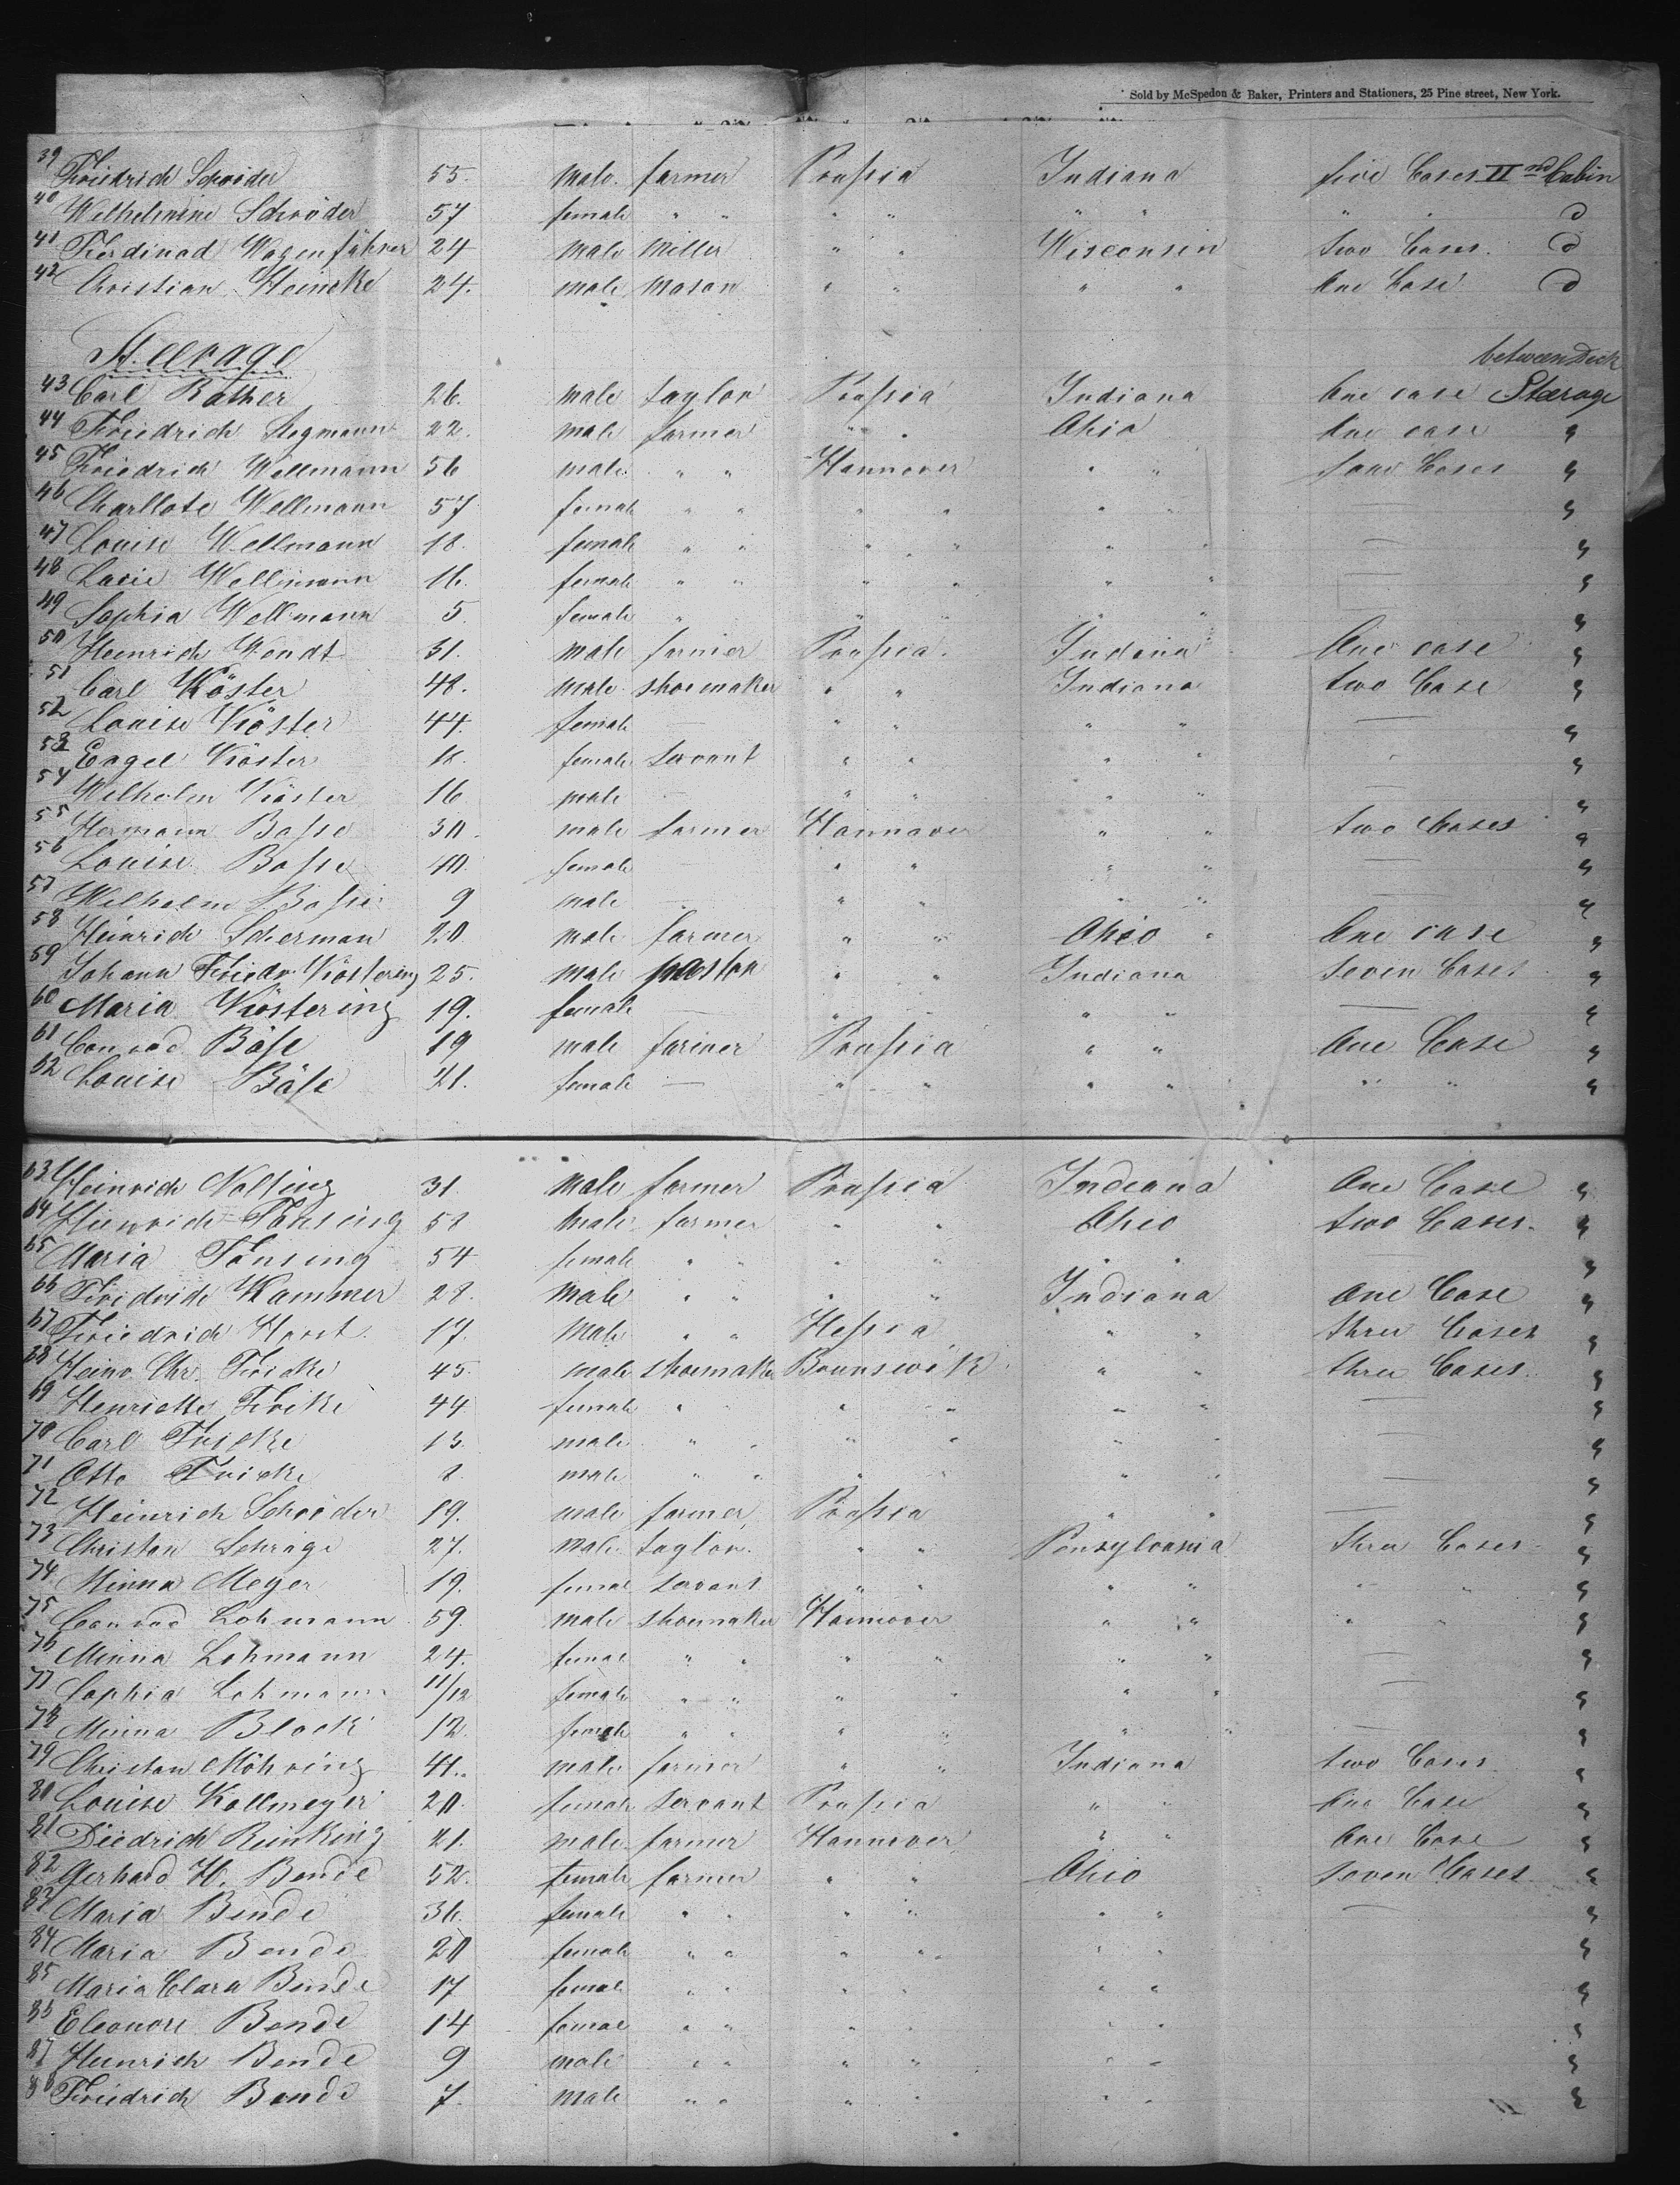 Sold by McSpedon & Baker, Printers and Stationers, 25 Pine street, New York.
39 Friedrich Schröder 55. male. farmer Prussia Indiana five Cases II nd Cabin
40 Wilhelmine Schröder 57 female " " " " " " " " d
41 Ferdinad Wagenführer 24 male Miller " " Wisconsin two Cases. d
42 Christian Heineke 24. male Mason " " " " One Case d
Steerage
between Deck
43 Carl Rather 26. male taylor Prussia Indiana One case Steerage
44 Friedrich Stegmann 22. male farmer " " Ohio One case "
45 Friedrich Wellmann 56 male. " " Hannover " " Cases "
46 Charllote Wellmann 57 female " " " " " " — "
47 Louise Wellmann 18. female " " " " " " — "
48 Wellmann 16. female " " " " " " — "
49 Sophia Wellmann 5. female " " " " " "
50 Heinrich Wendt 31. male farmer Prussia. Indiana One case "
51 Carl Köster 48. male shoemaker " " Indiana two Case "
52 Louise Köster 44. female — " " " " — "
53 Engel Köster 18. female servant " " " " - "
54 Wilhelm Köster 16 male — " " " " — "
55 Hermann Basse 30. male farmer Hannover " " two Cases "
56 Louise Basse 40. female — " " " " — "
57 Wilhelm Basse 9 male — " " " " — "
58 Heinrich Scherman 20. male farmer " " Ohio One case "
59 Johann Friedr Köstering 25. male pastor " " Indiana seven Cases "
60 Maria Köstering 19. female " " " " — "
61 Conrad Böse 19 male farmer Prussia " " One Case "
62 Louise Böse 21. female — " " " " " " "
63 Heinrich Nolting 31 male farmer Prussia Indiana One Case "
64 Heinrich Tönsing 58 male farmer " " Ohio two Cases. "
65 Maria Tönsing 54 female " " " " " " — "
66 Friedrich Kammer 28. male " " " " Indiana One Case "
67 Friedrich Horst. 17. male " " Hessia " " three Cases "
68 Heinr Chr. Fricke 45. male shoemaker Braunswik " " three Cases. "
69 Henriette Fricke 44. female " " " " " " — "
70 Carl Fricke 13. male " " " " " " — "
71 Otto Fricke 8. male " " " " " " — "
72 Heinrich Schröder 19. male farmer Prussia " " — "
73 Christan Schrage 27. male taylor. " " Pensylvania three Cases. "
74 Minna Meyer 19. femal servant " " " " " " "
75 Conrad Lohmann 59. male shoemaker Hannover " " " " "
76 Minna Lohmann 24. femal " " " " " " — "
77 Sophia Lohmann 11/12 female " " " " " " — "
78 Minna Block 12 female " " " " " " — "
79 Christan Möhring male farmer " " Indiana two Cases "
80 Louise Kollmeyer 20. female servant Prussia " " One Case "
81 Diedrich Reinking 21. male farmer Hannover " " One Case "
82 Gerhard H. Bende 52. female farmer " " Ohio seven Cases "
83 Maria Bende 36. female " " " " " " — "
84 Maria Bende 20 female " " " " " " "
85 Maria Clara Bende 17 femal " " " " " " "
86 Eleonore Bende 14 femal " " " " " " "
87 Heinrich Bende 9 male " " " " " " "
88 Friedrich Bende 7. male " " " " " " "